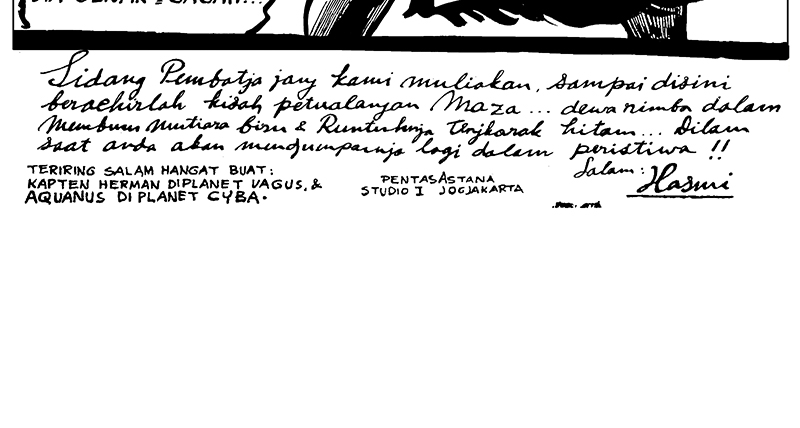 Sidang Pembatja jang kami muliakan, sampai disini
berachirlah kisah petualangan Maza ... dewa rimba dalam
Memburu Mutiara biru & Runtuhnja Tengkorak hitam... Dilain
saat anda akan mendjumpainja lagi dalam peristiwa !!
Salam:
TERIRING SALAM HANGAT BUAT:
KAPTEN HERMAN DIPLANET VAGUS, &
AQUANUS DI PLANET CYBA.
PENTASASTANA
STUDIO I JOGJAKARTA
Hasmi